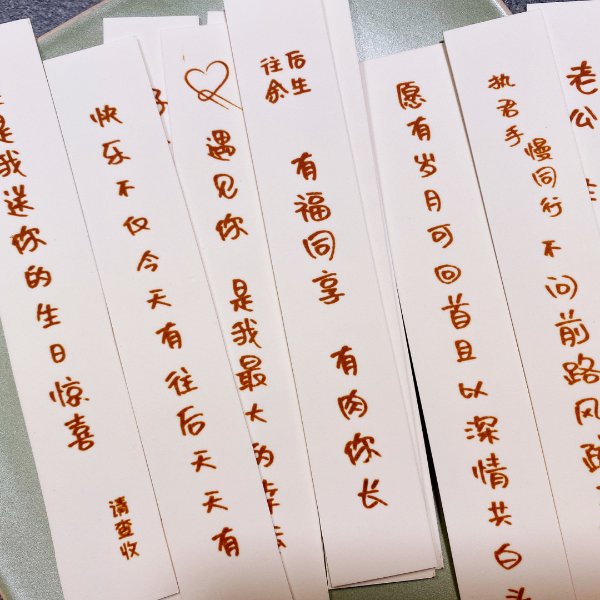 是我送你的生日惊喜
请查收
快乐不仅今天有往后天天有
遇见你 是我最大的幸运
往后
余生
有福同享 有肉你长
愿有岁月可回首且以深情共白头
执君手
慢同行 不问前路风
老公